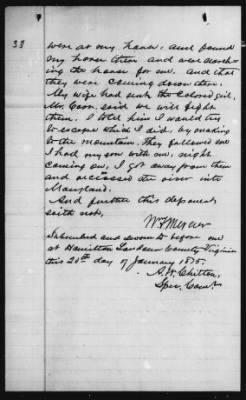 33
were at my house, and found
my horse there and were search-
ing the house for me. And that
they were coming down there.
My wife had sent the Colored girl.
Mr. said we will fight
them. I told him I would try
to escape which I did, by making
to the mountain. They followed me
I had my son with me. night
coming on, I got away from them
and accrossed the river into
Maryland.
And further this deponent
saith not,
W F Mercer
Subscribed and sworn to before me
at Hamilton Loudoun County Virginia
this 20th day of January 1875.
A. W. Chilton,
Spec. Com.